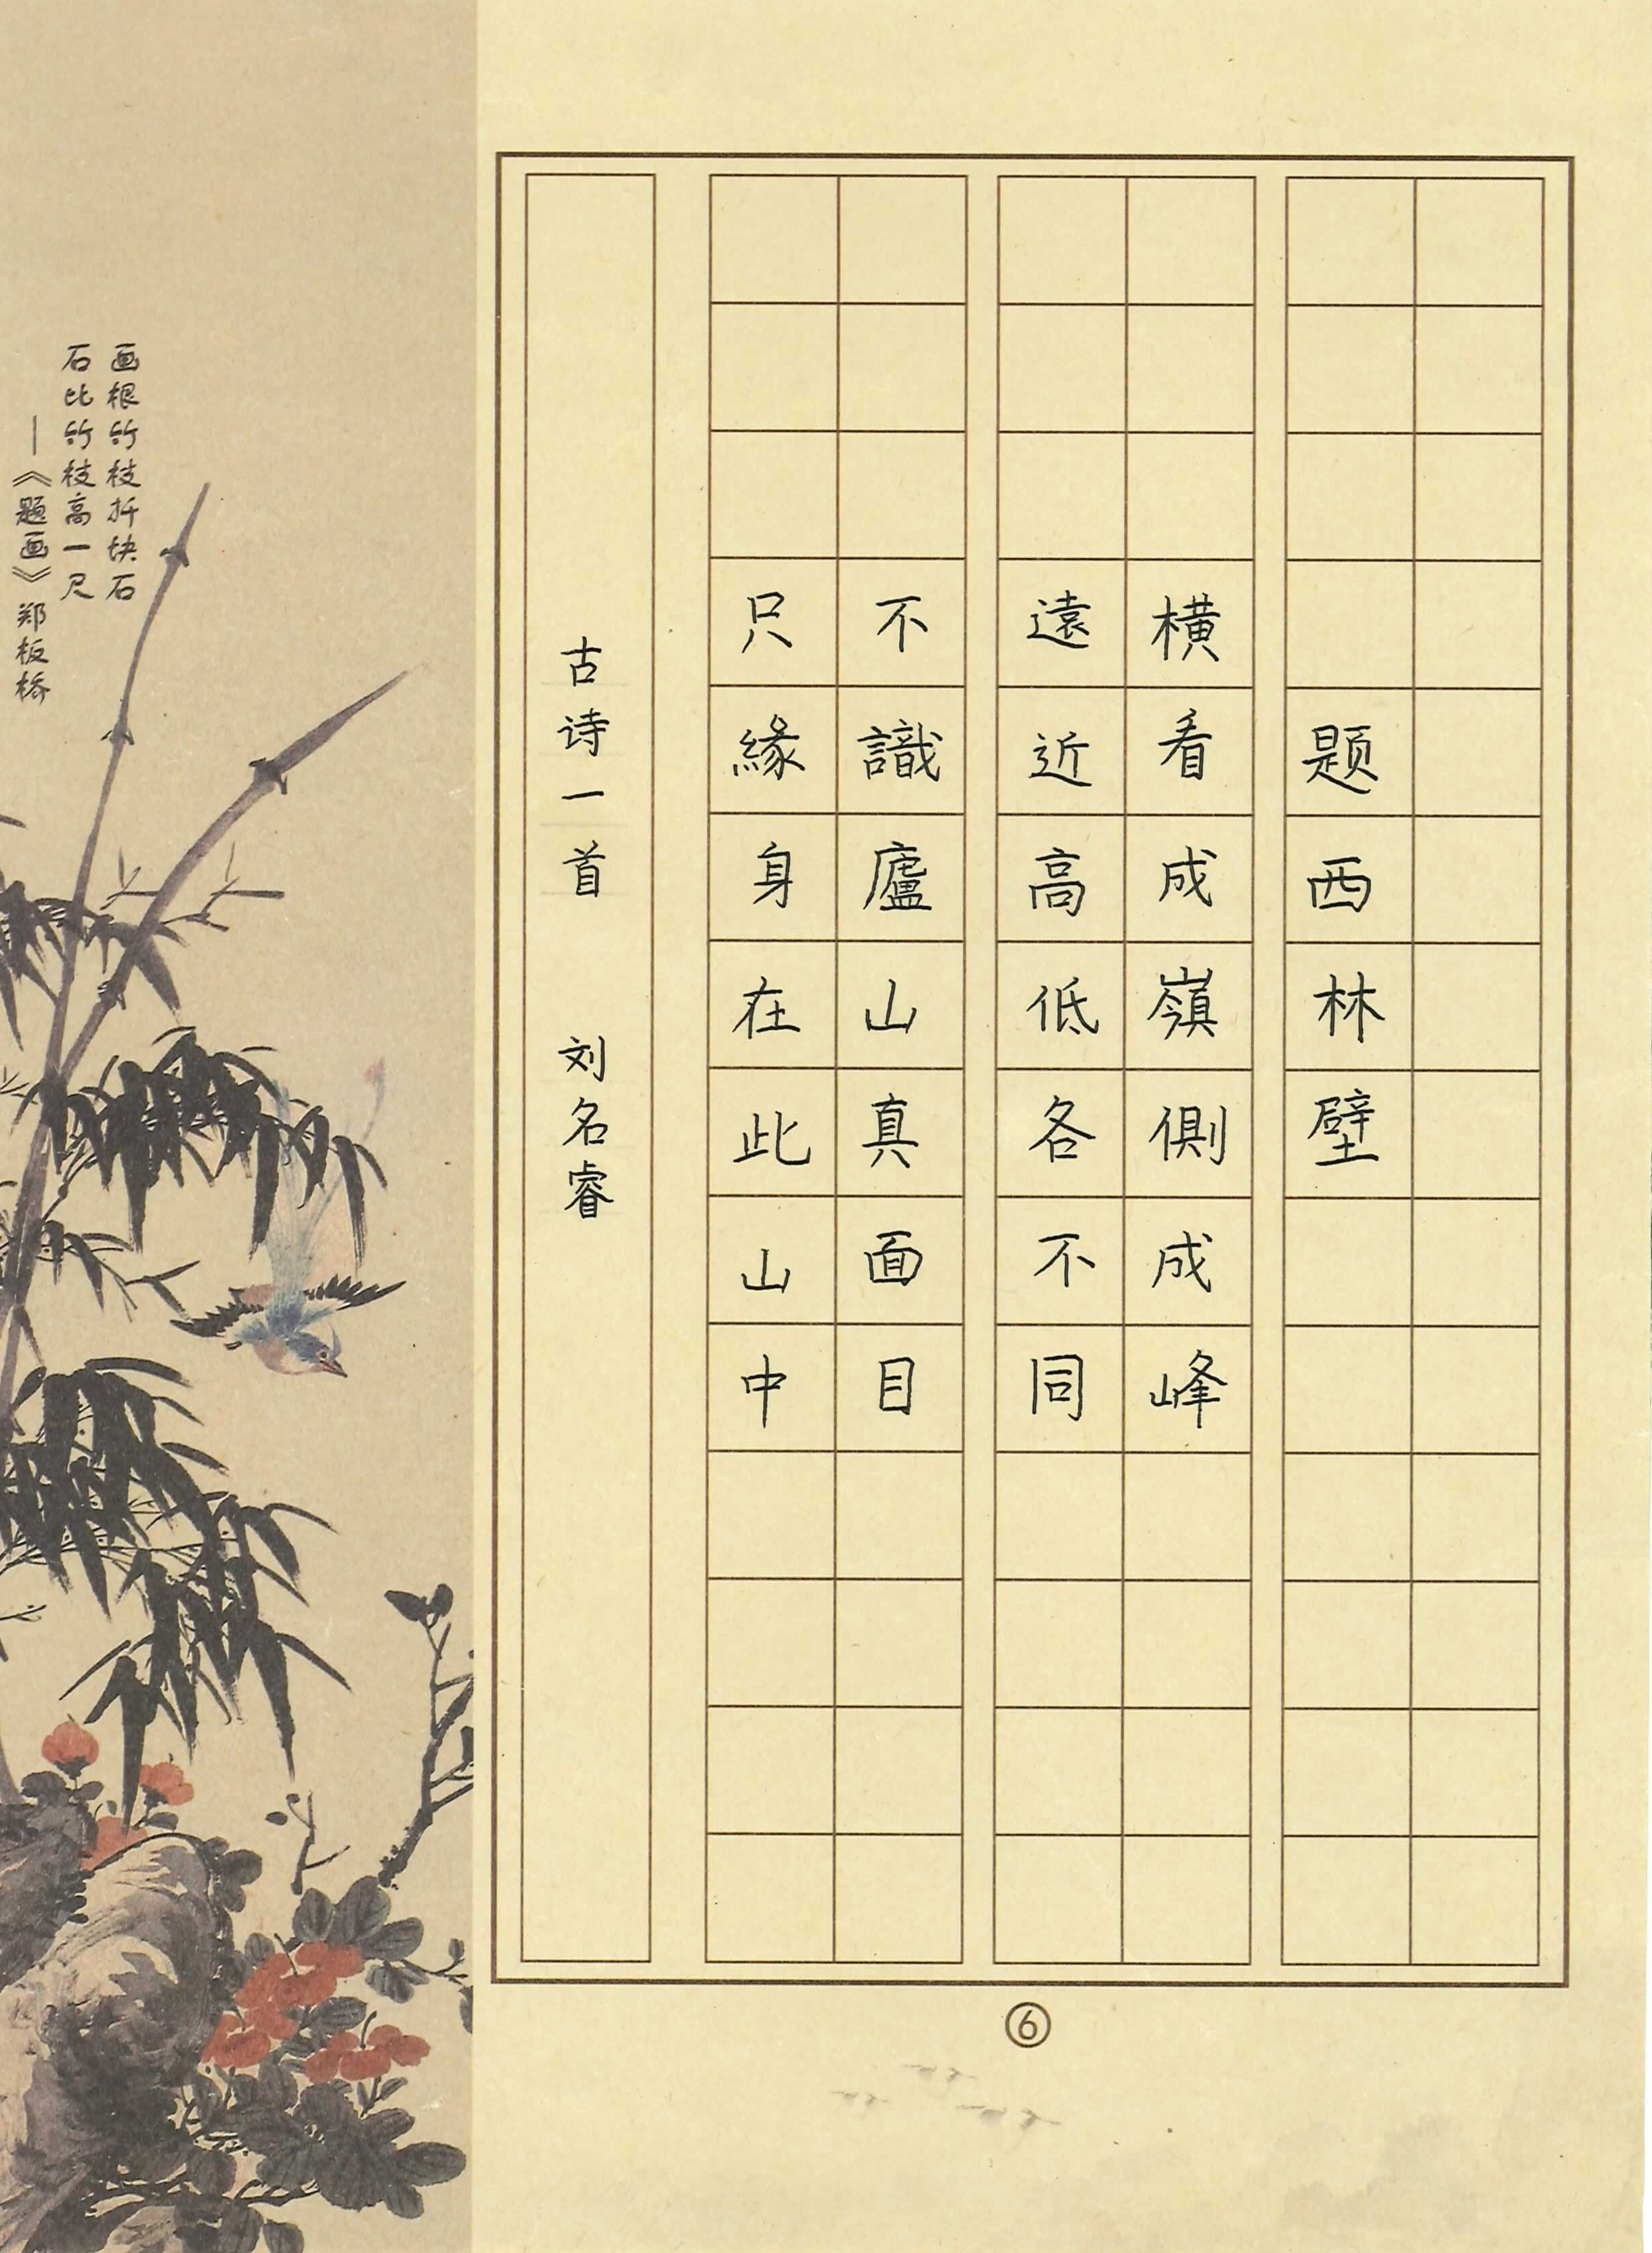 题西林壁
横看成嶺側成峰
遠近高低各不同
不識廬山真面目
只緣身在此山中
古诗一首 刘名睿
画根竹枝扦块石
石比竹枝高一尺
——《题画》郑板桥
⑥